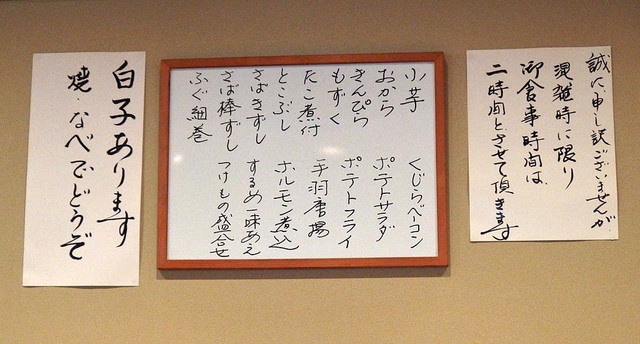 誠に申し訳ございませんが
混雑時に限り
御食事時間は、
二時間とさせて頂きます
小芋
おから
きんぴら
もずく
たこ煮付
とこぶし
さばきずし
さば棒ずし
ふぐ細巻
くじらベーコン
ポテトサラダ
ポテトフライ
手羽唐揚
ホルモン煮込
するめ一味あえ
つけもの盛合せ
白子あります
焼・なべでどうぞ